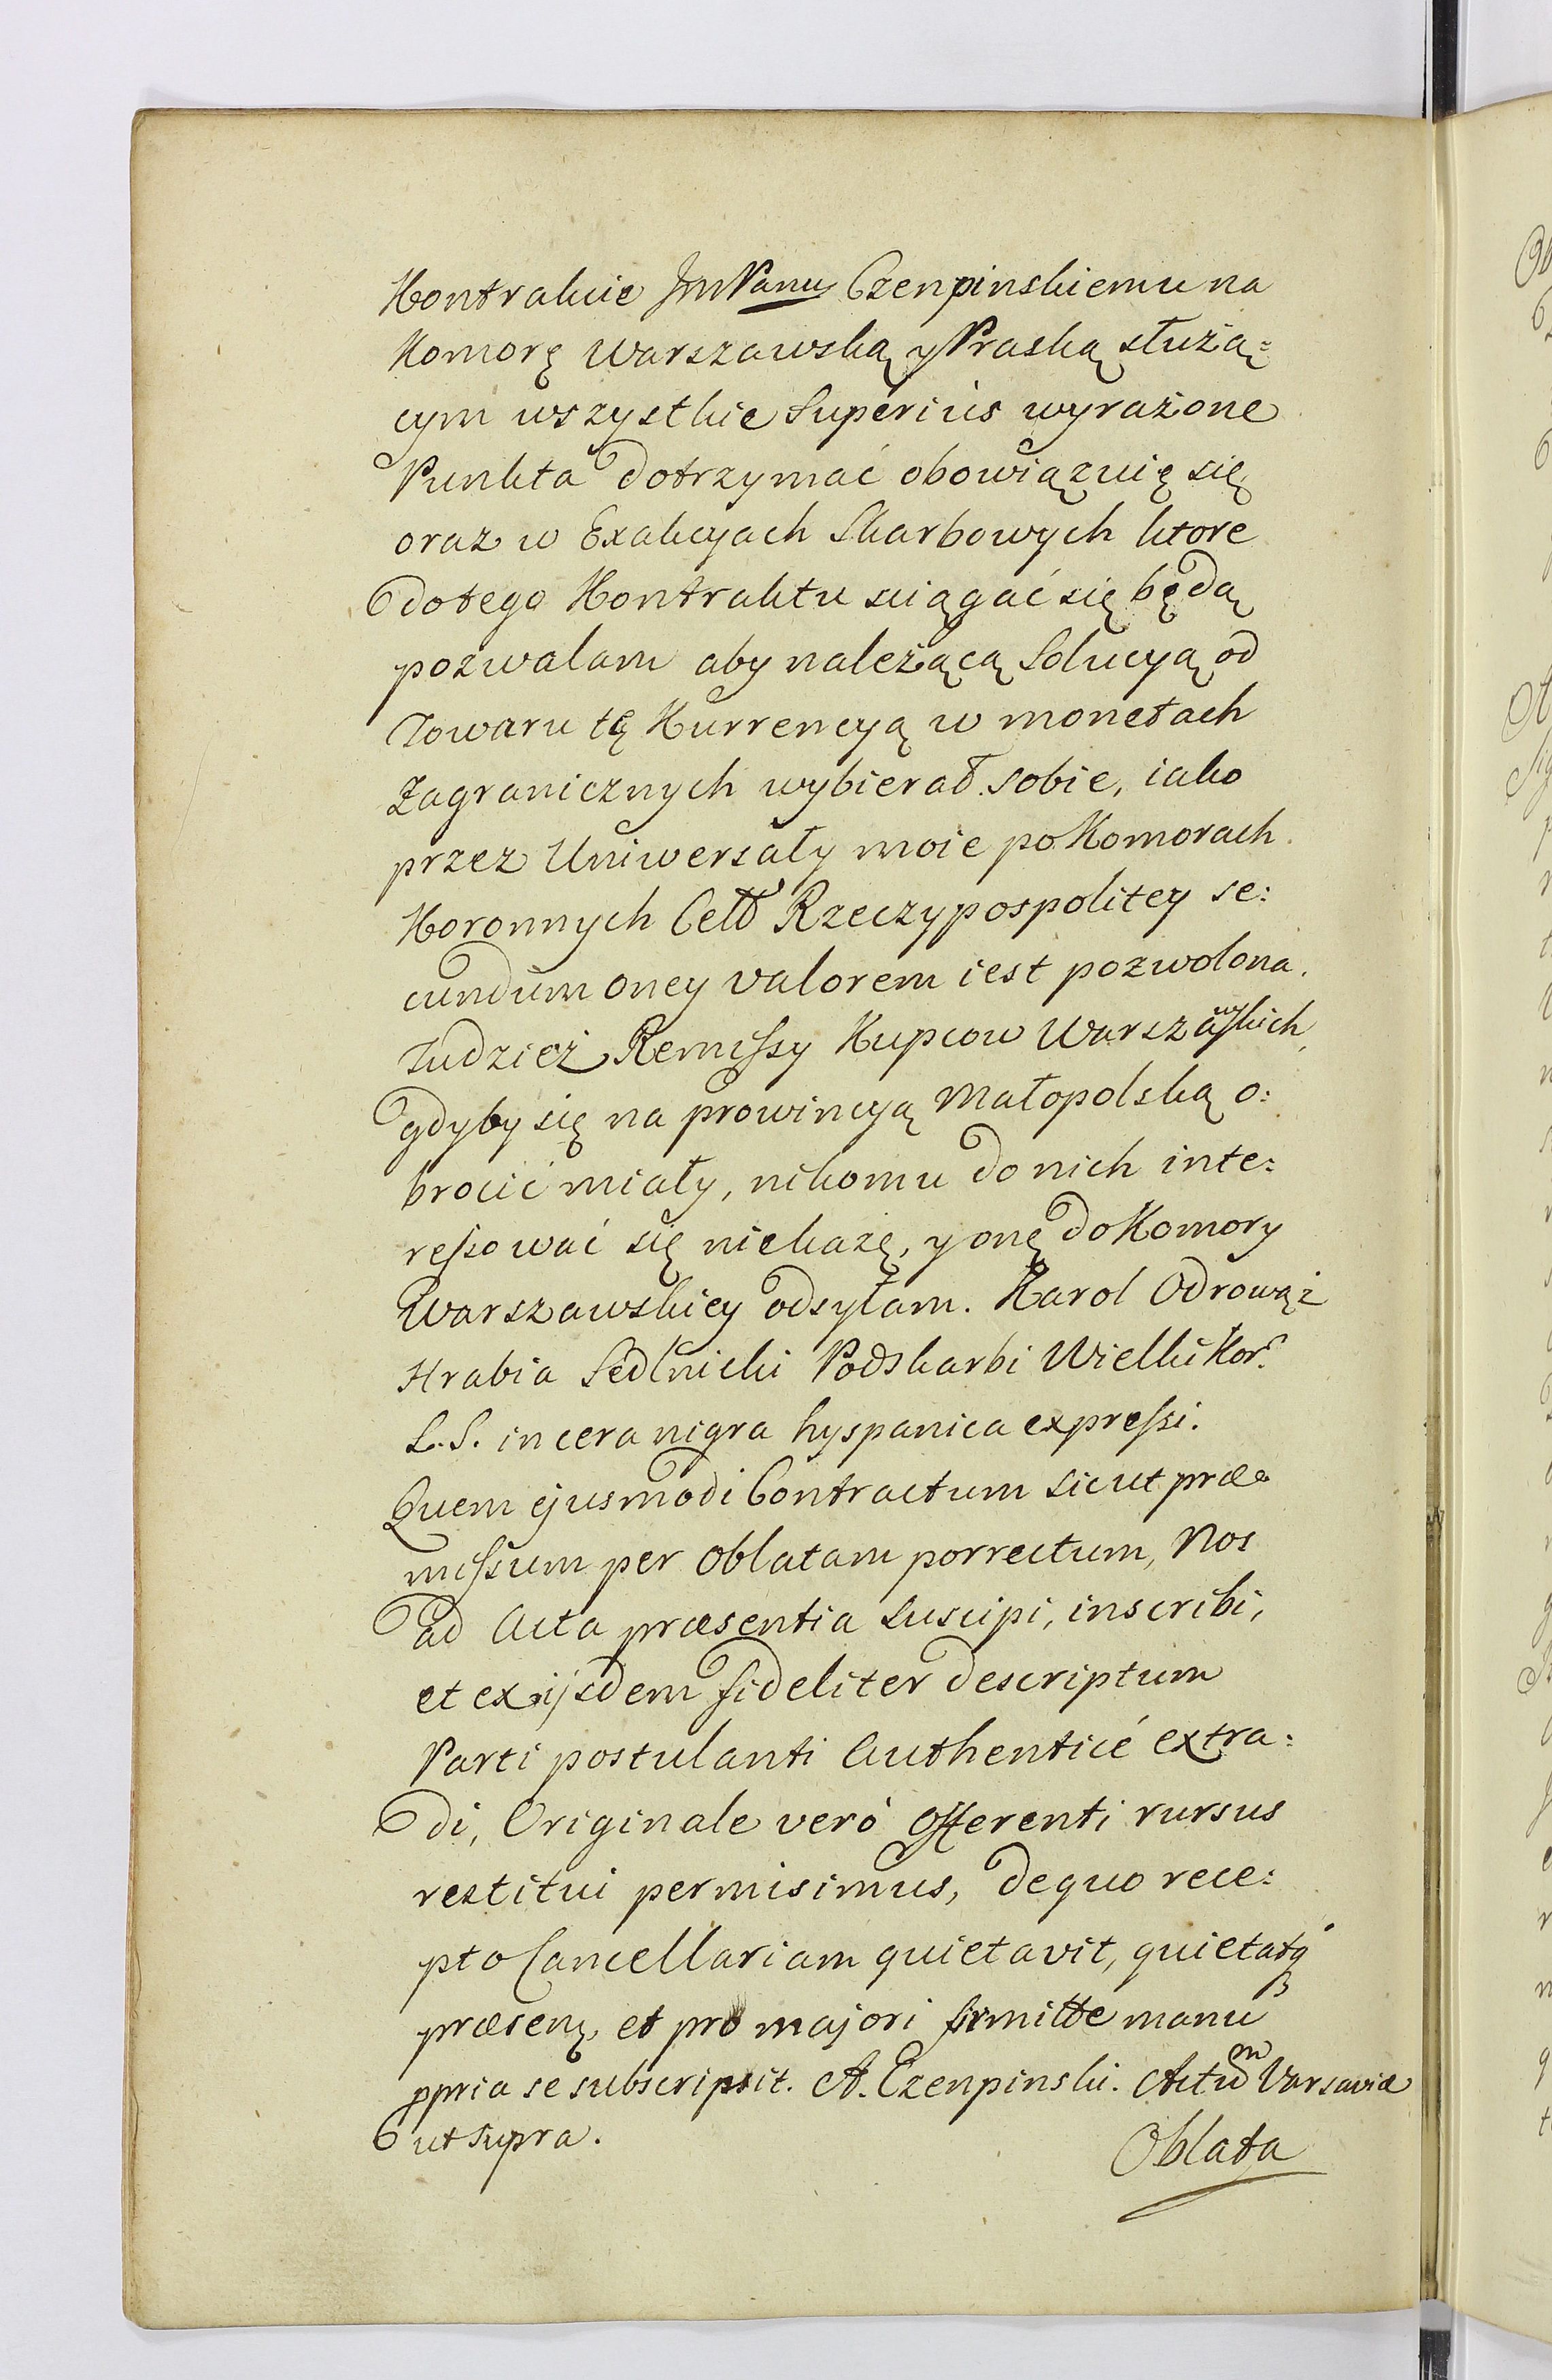 Kontrakcie JmPanu Czenpinskiemu na
Komorę Warszawską y Praską służą:
cym wszystkie Superiùs wyrażone
Punkta dotrzymać obowiązuię się,
oraz w Exakcyach Skarbowych ktore
dotego Kontraktu sciągać się będą
pozwalam aby należącą Solucyą od
Towaru tę Kurrencyą w monetach
Zagranicznych wybierał sobie, iako
przez Uniwersały moie po Komorach
Koronnych Cełł Rzeczypospolitey se:
cundum oney valorem iest pozwolona.
Tudzież Remissy Kupcow Warszawskich,
gdyby się na prowincyą Małopolską o:
brocić miały, nikomu do nich inte:
ressować się niekażę, y onę do Komory
Warszawskiey odsyłam. Karol Odrowąż
Hrabia Sedlnicki Podskarbi Wielki Kor:
L. S. in cera nigra hyspanica expressi.
Quem ejusmodi Contractum sicut præ
missum per Oblatam porrectum, Nos
ad Acta præsentia Suscipi, inscribi,
et ex ijsdem fideliter descriptum
Parti postulanti Authenticé extra:
di, Originale veró Offerenti rursus
restitui permisimus, de quo rece:
pto Cancellariam quietavit, quietatq́
præsenʒ, et pro majori firmitte manu
ppria se subscripsit. A. Czenpinski. Actum Varsaviæ
ut Supra.
Oblata